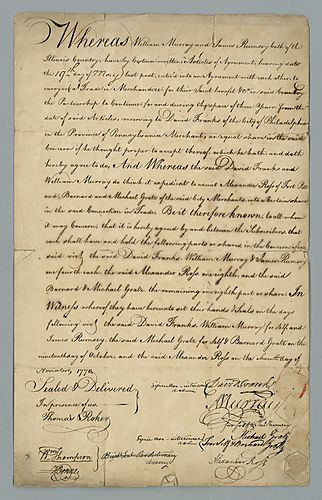 Whereas William Murray and James Rumsey both of the
Illinois Country, have by Certain written Articles of Agreement, bearing date
the 19th day of May last past, enter'd into an Agreement with each other, to
carry on a Trade in Merchandize for their Joint benefit &c in said Country,
the Partnership to Continue for and during the space of three Years from the
date of said Articles, reserving to David Franks of the City of Philadelphia
in the Province of Pennsylvania Merchants an equal share in the said
concern if he thought proper to accept thereof which he hath, and doth
hereby agree to do, And Whereas the said David Franks and
William Murray do think it expedient to admit Alexander Ross of Fort Pitt
and Barnard and Michael Gratz of the said City Merchants into
in the said Connection in Trade, Be it therefore known, to all whom
it may Concern, that it is hereby agreed by and between the Subscribers, that
each shall have and hold the following parts or shares in the Concern afore
said viz't the said David Franks, William Murray & James Rumsey
one fourth each, the said Alexander Ross one eighth, and the said
Barnard & Michael Gratz the remaining one eighth part or share. In
Witness whereof they have hereunto set their hands & Seals on the days
following viz't the said David Franks, William Murray for self and
James Rumsey, the said Michael Gratz for self & Barnard Gratz on the
nineteenth day of October, and the said Alexander Ross on the day of
November, 1770.
Sealed & Delivered
In presence of us
David Franks
Thomas
W Murray
Michael Gratz
for self & Barnard Gratz
Wm Thompson
Alexander Ross